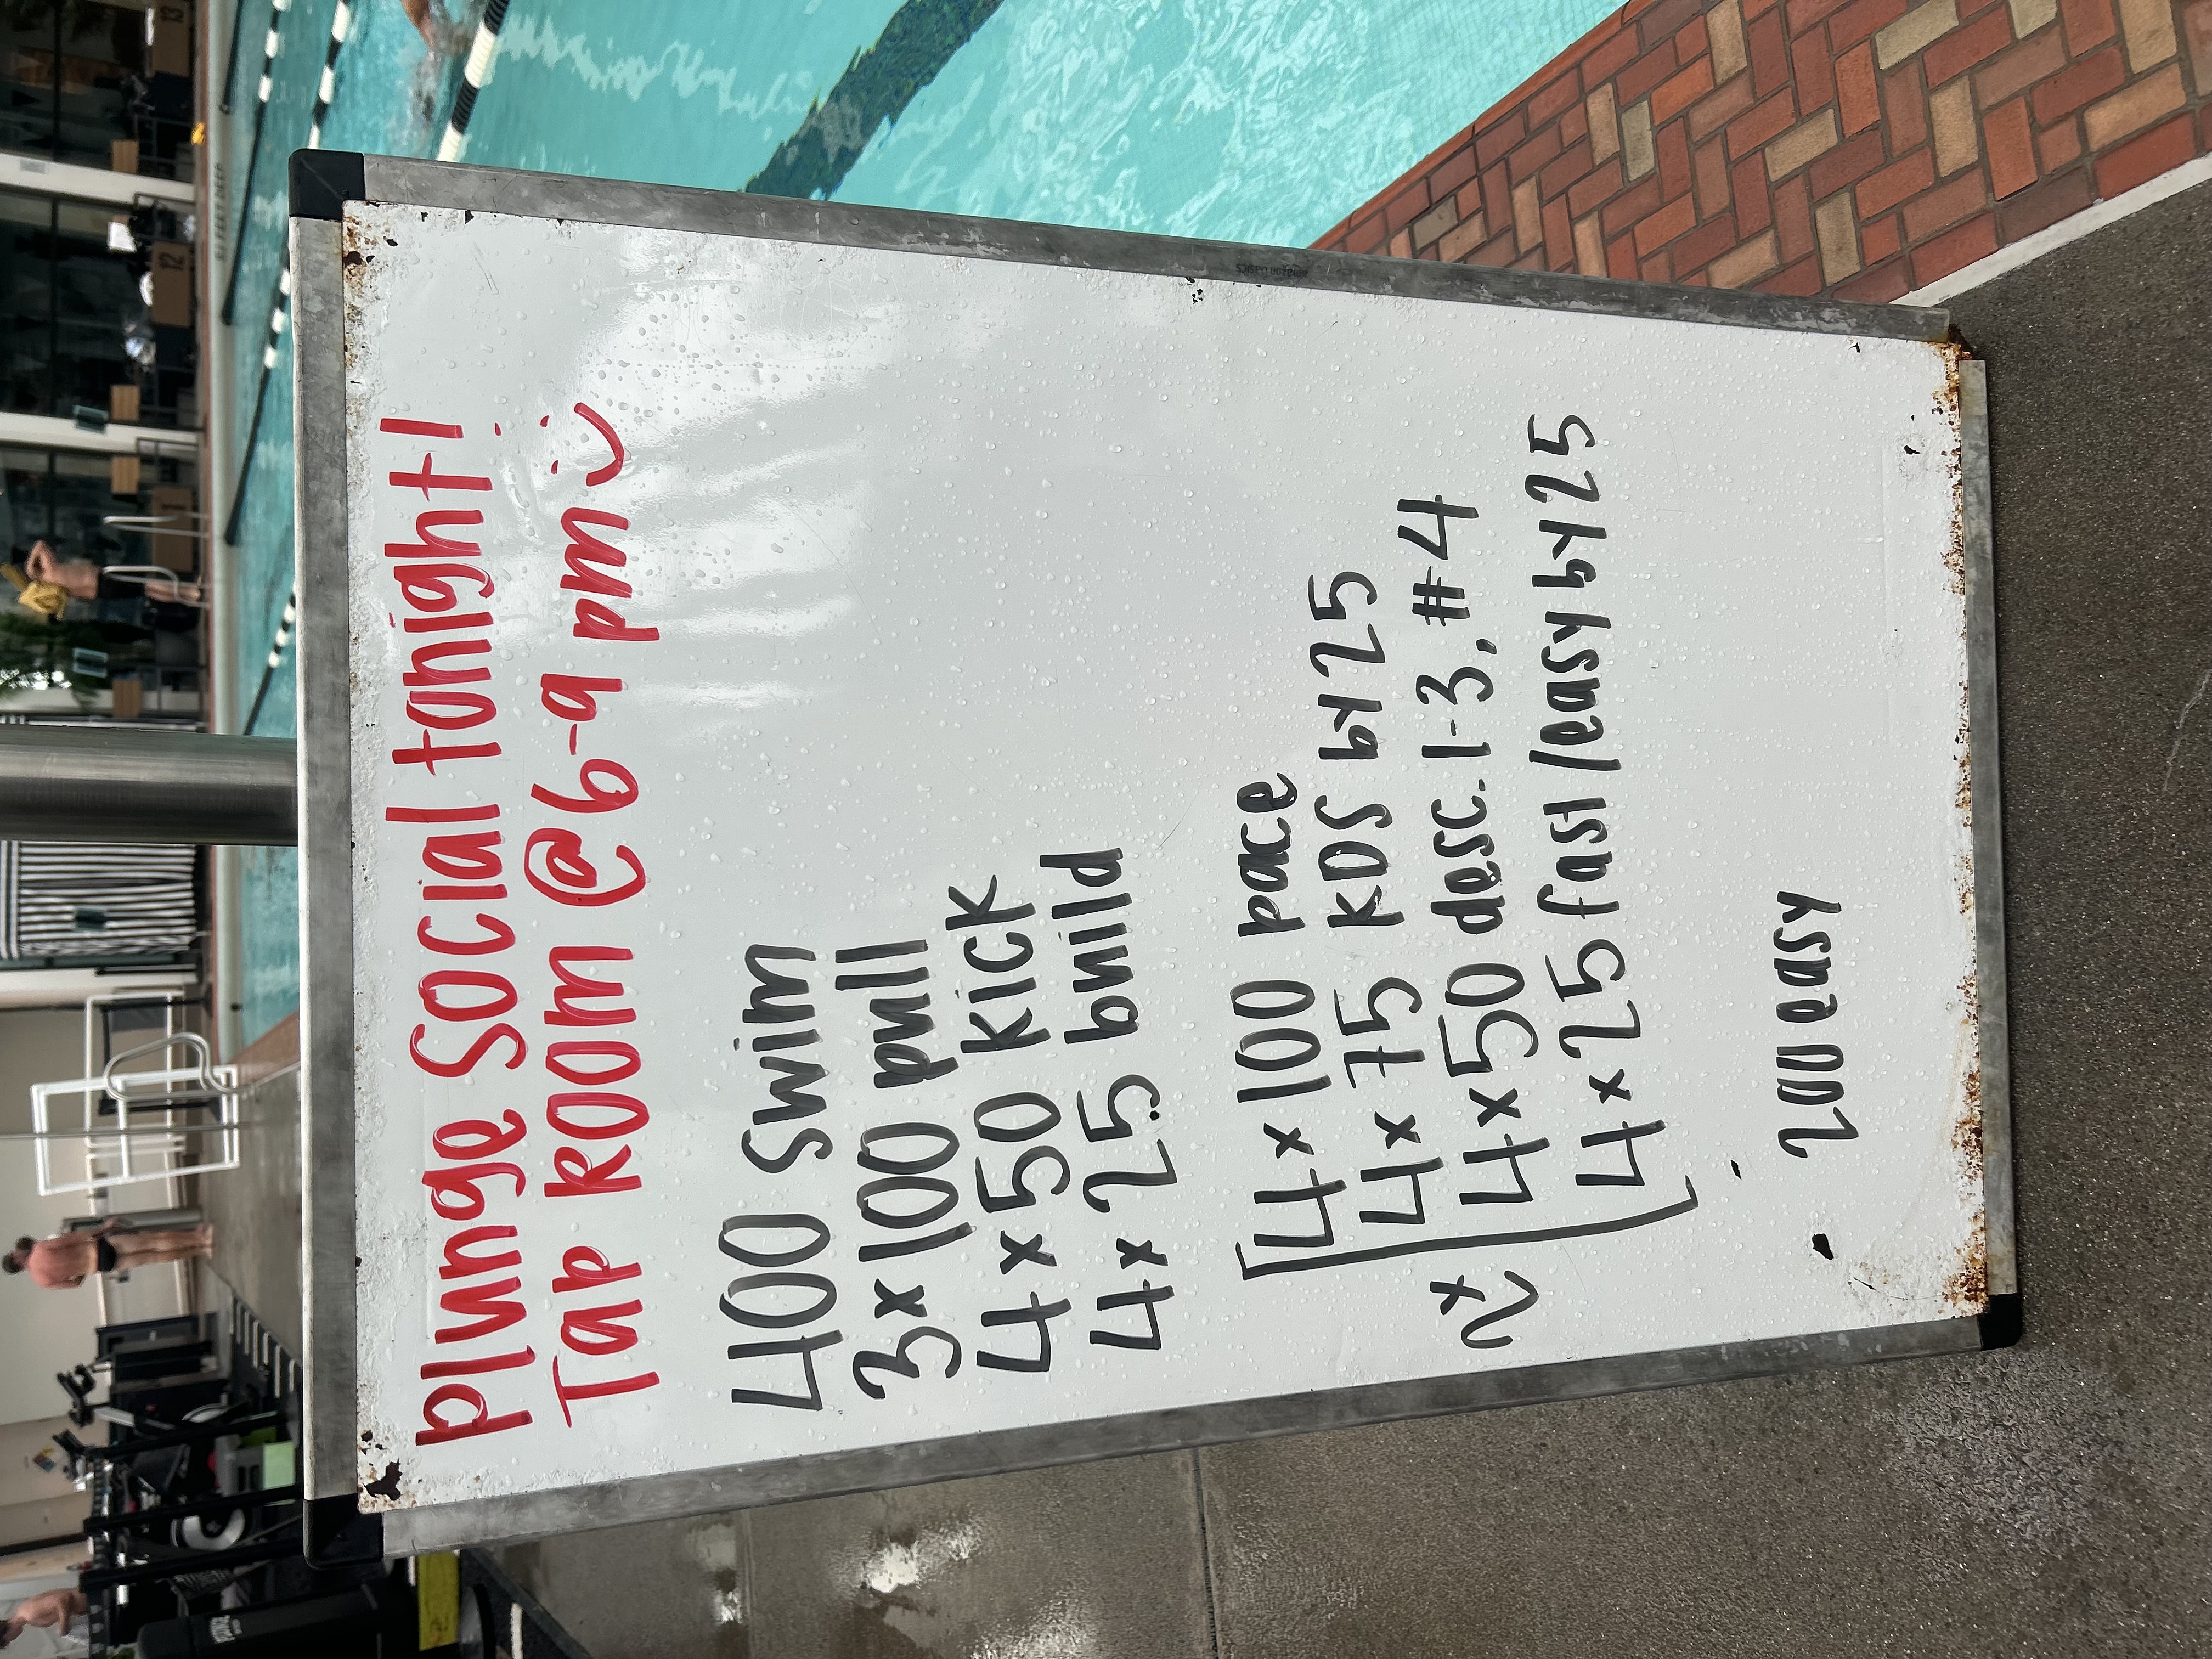 plunge Social tonight!
Tap ROOM @ 6-9 pm :)
400 swim
3x100 pull
4x50 kick
4x25 build
2x
4x100 pace
4x75 KDS by 25
4x50 desc. 1-3, #4
4x25 fast/easy by 25
200 easy
amazon basics
12